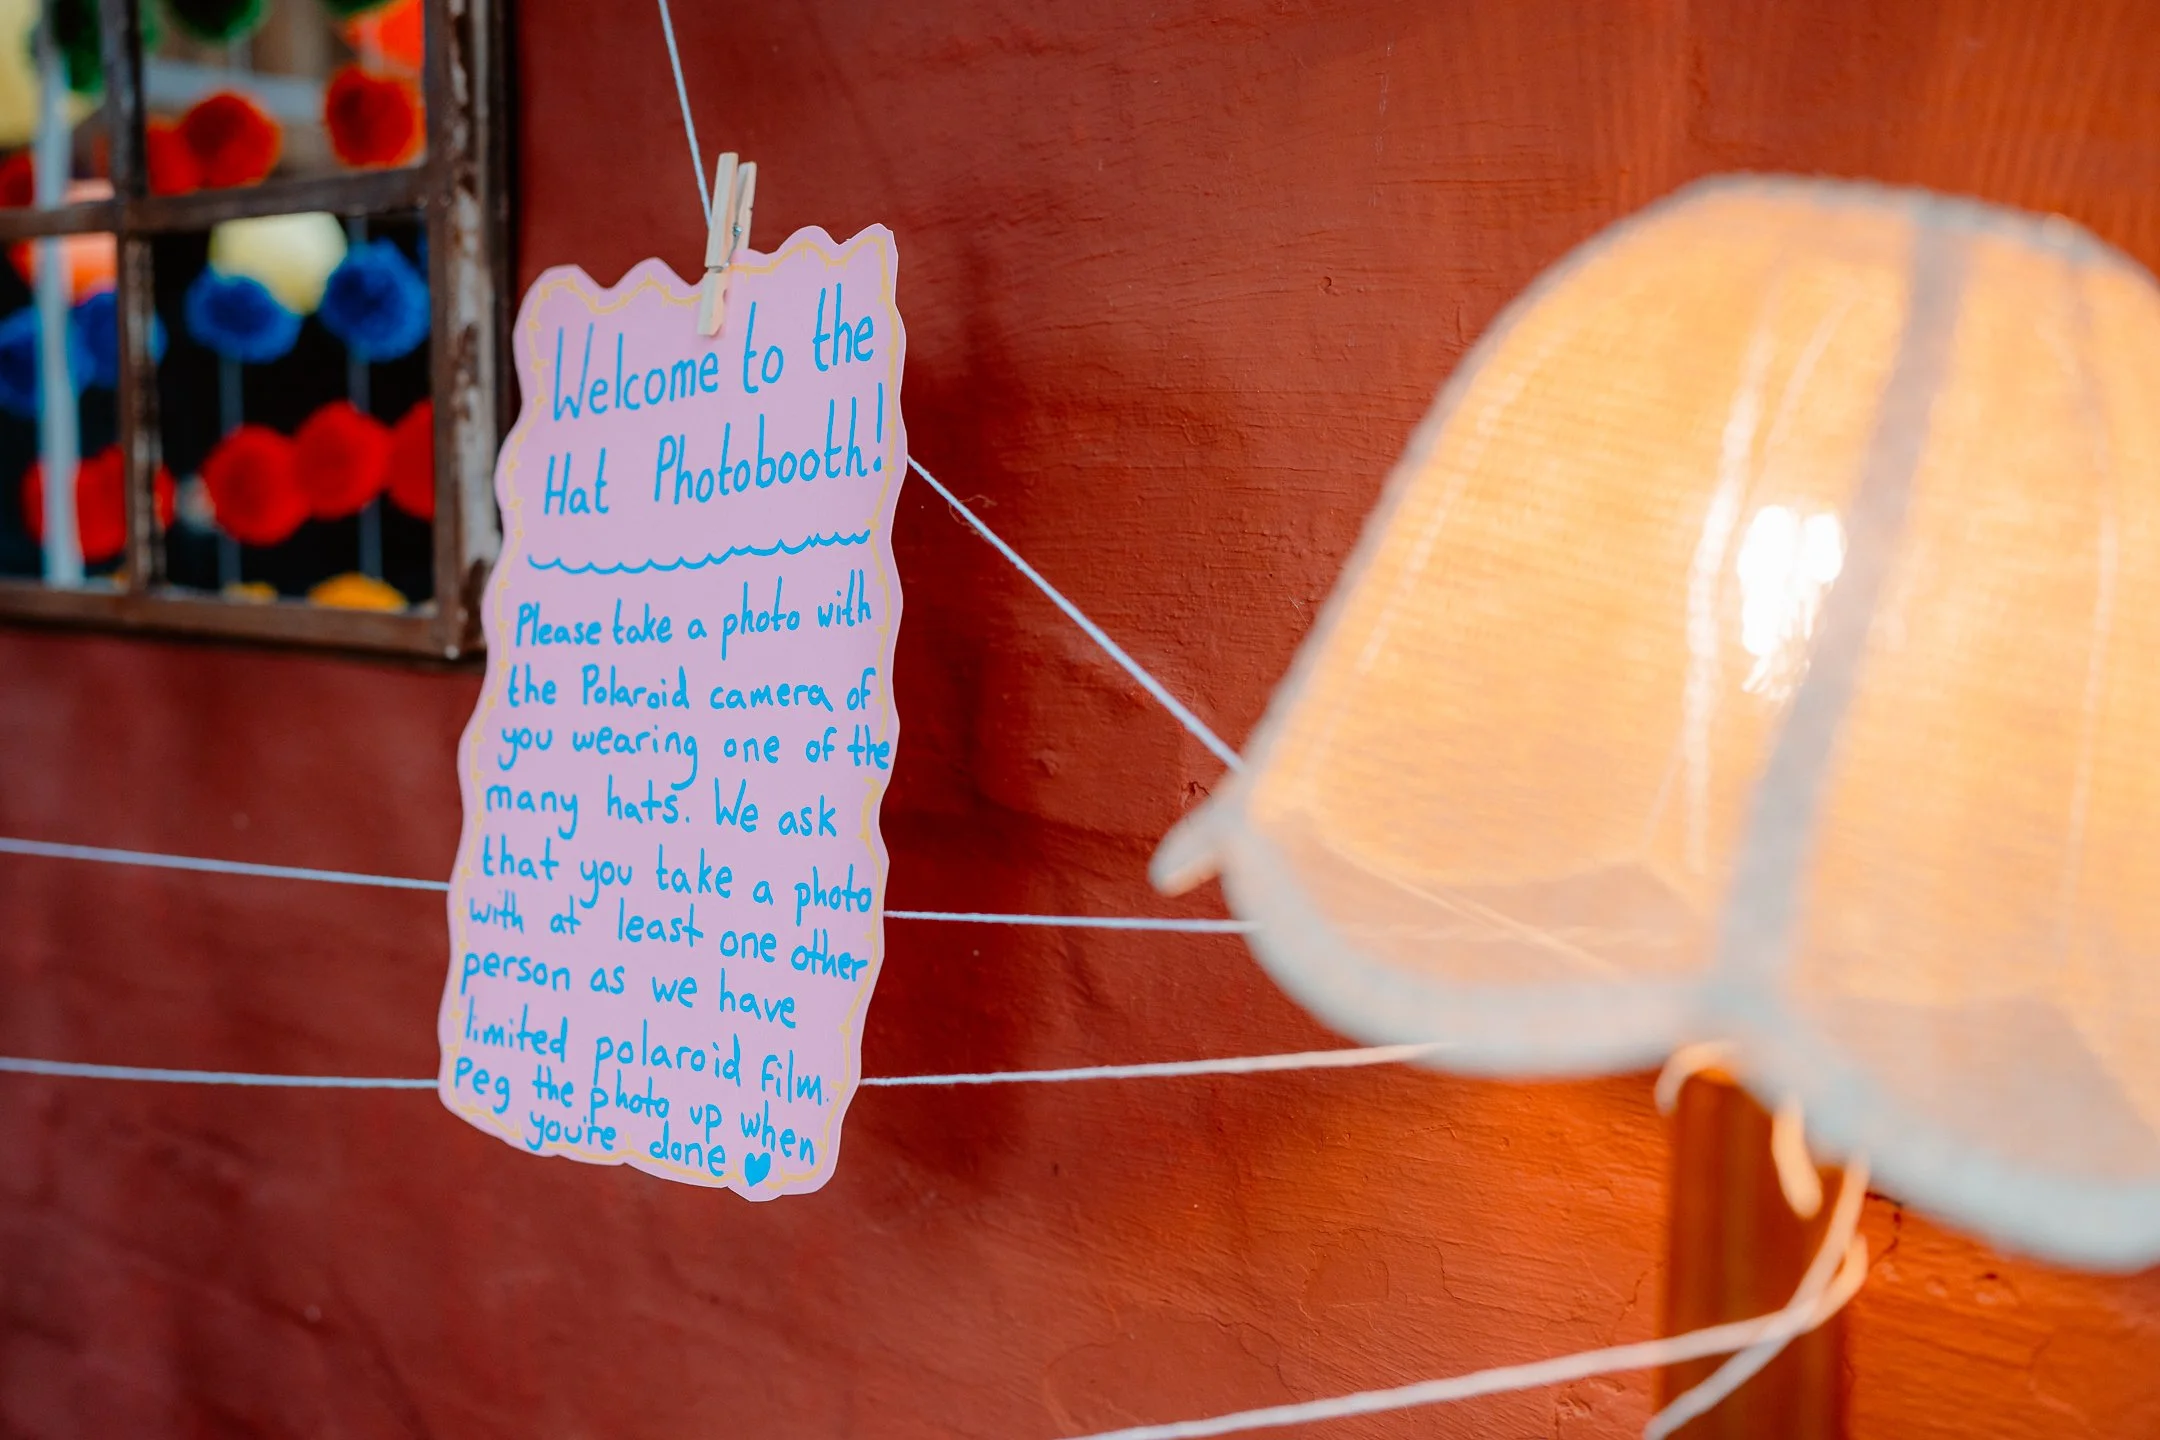 Welcome to the
Hat Photobooth!
Please take a photo with
the Polaroid camera of
you wearing one of the
many hats. We ask
that you take a photo
with at least one other
person as we have
limited polaroid film.
Peg the photo up when
you're done